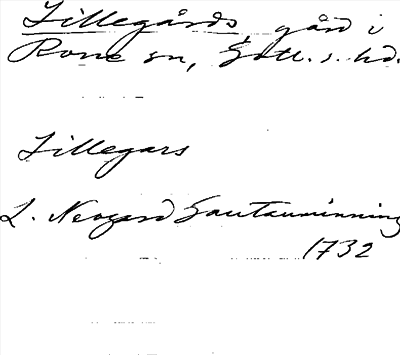 Lillegårds, gård i
Rone sn, Gotl. s. hd.
Lillegars
L. Neogard Gautauminning
1732